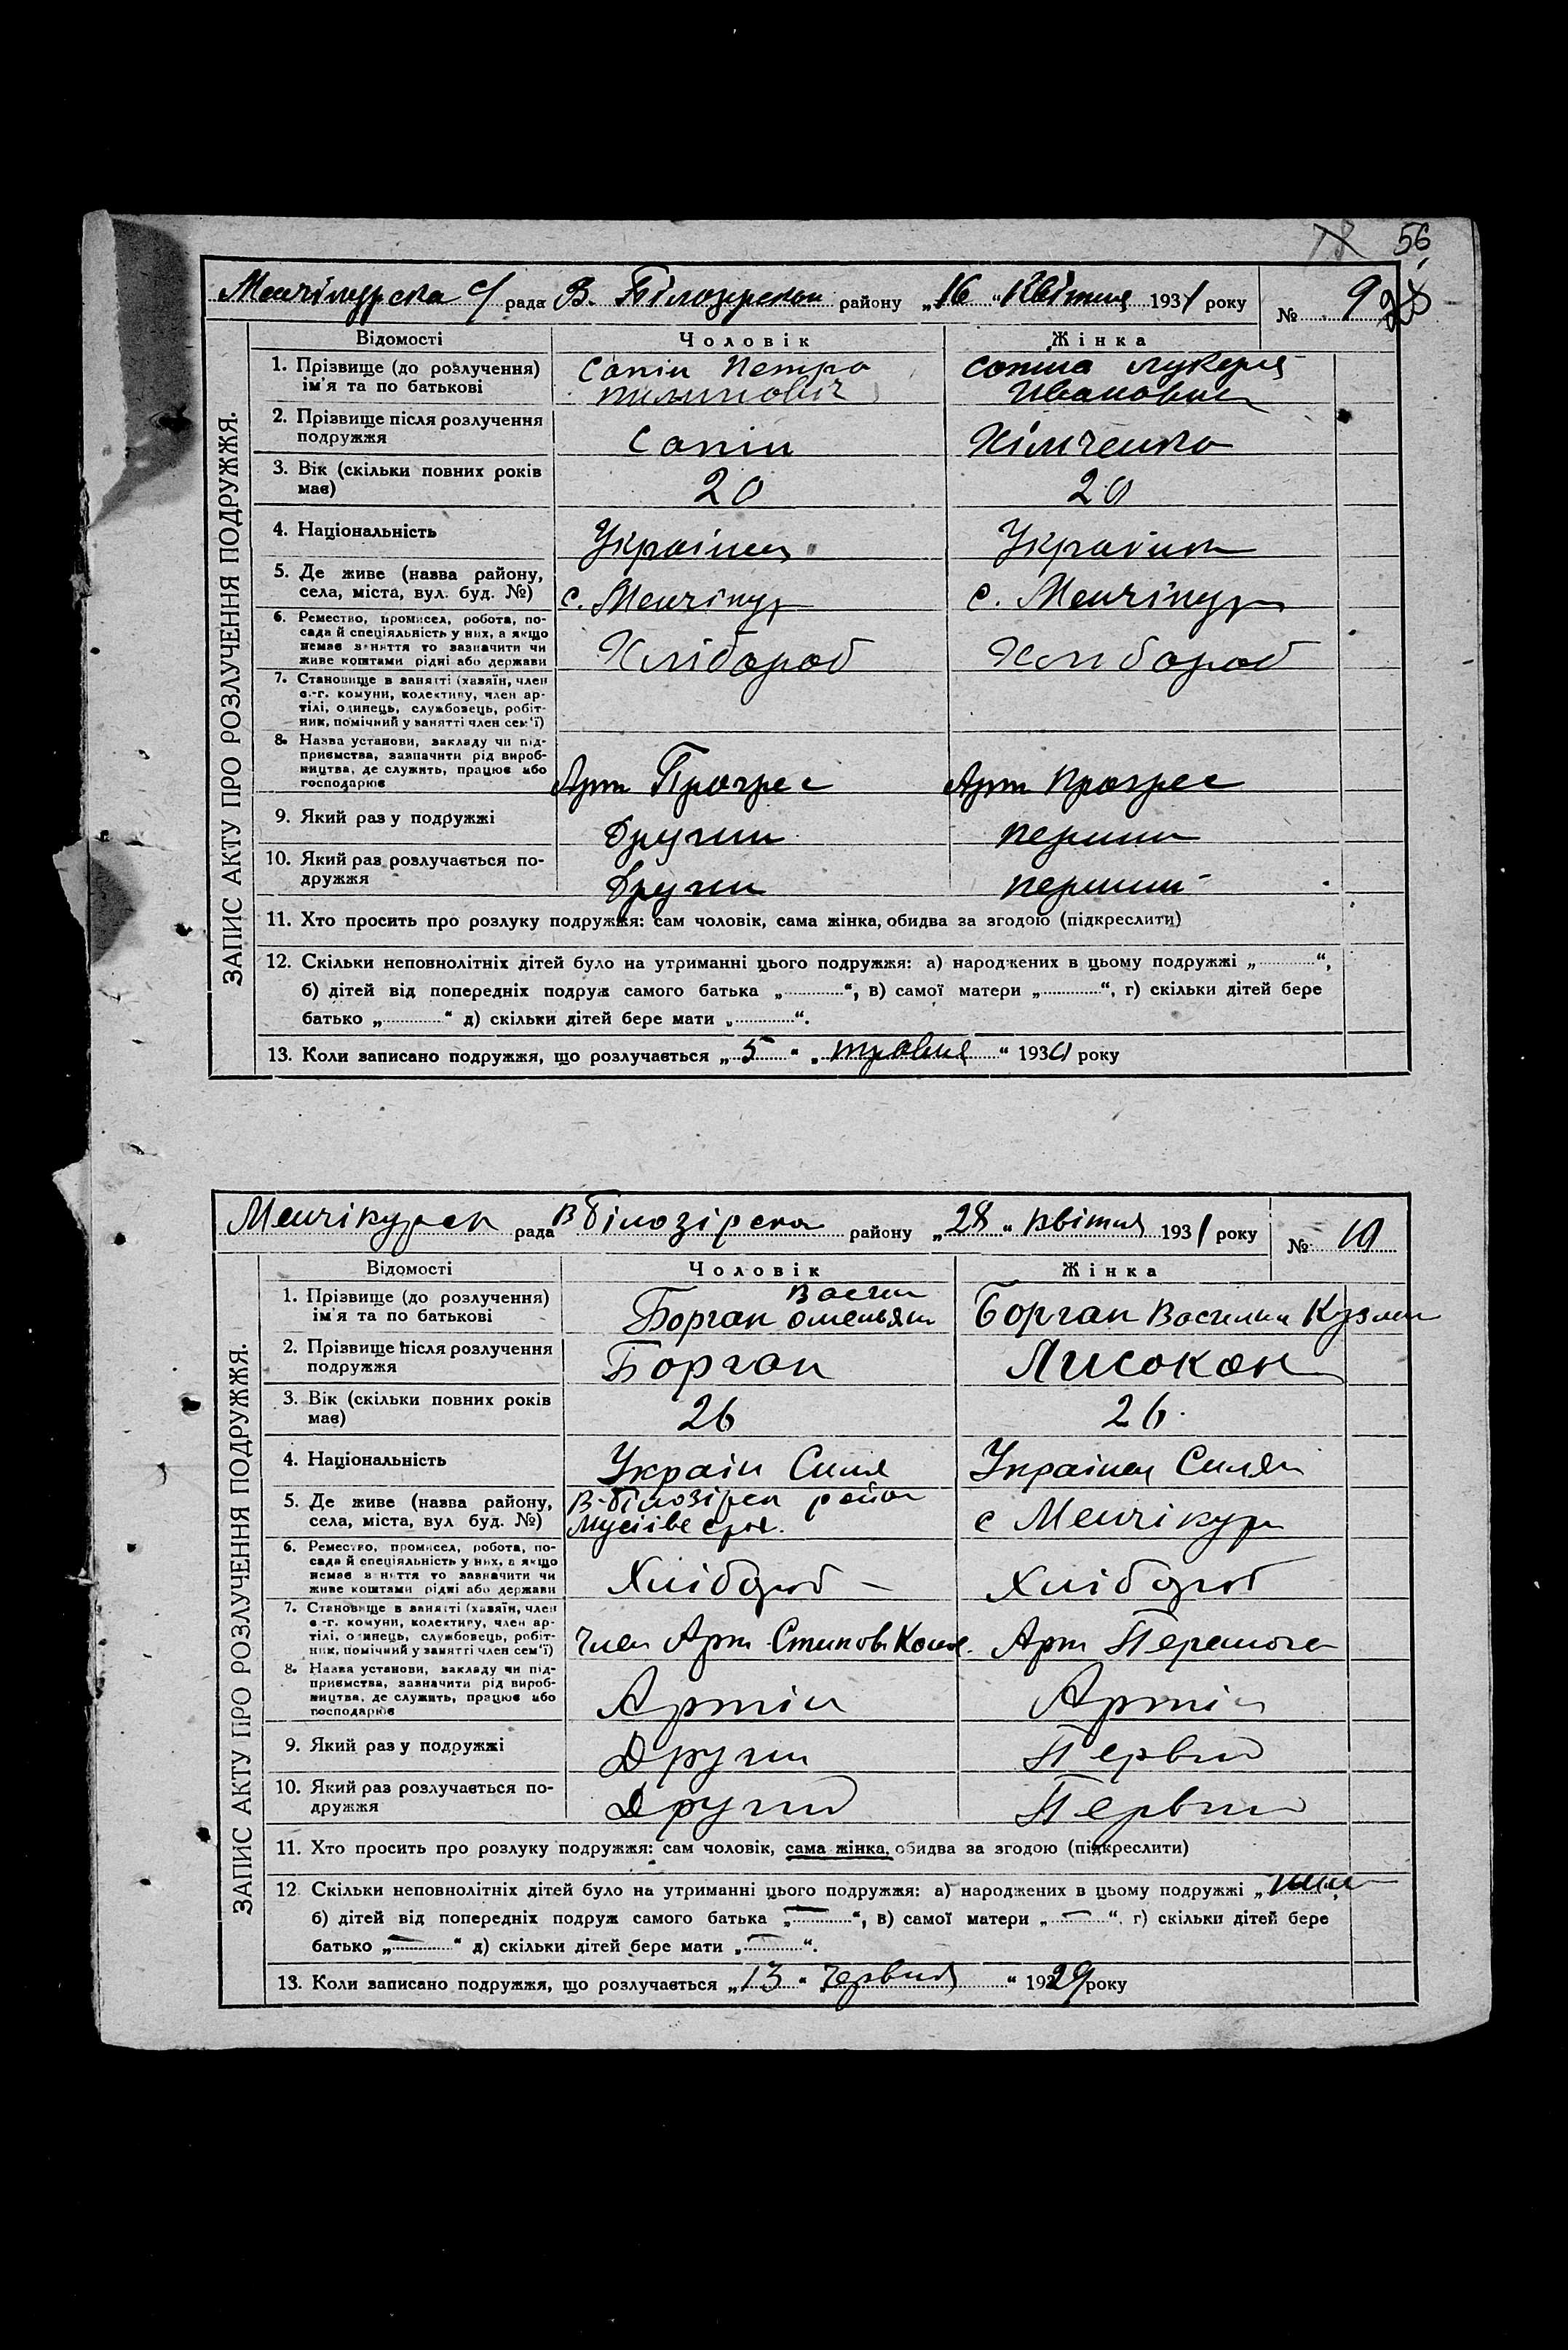 56
Менчікурска с/ рада В. Білозирскои району „16“ Квітня 1931 року № 9
ЗАПИС АКТУ ПРО РОЗЛУЧЕННЯ ПОДРУЖЖЯ.
Відомості Чоловік Жінка
1. Прізвище (до розлучення) ім'я та по батькові Сапін Петро Пилипович Сапіна Лукеря Ивановна
2. Прізвище після розлучення подружжя Сапін Хімченко
3. Вік (скільки повних років має) 20 20
4. Національність Українец Українка
5. Де живе (назва району, села, міста, вул. буд. №) с. Менчікур с. Менчікур
6. Ремество, промисел, робота, по-
сада й спеціяльність у них, а якщо
немає заняття то зазначити чи
живе коштами рідні або держави Хлібороб Хлібороб
7. Становище в занятті (хазяїн, член
с.-г. комуни, колективу, член ар-
тілі, одинець, службовець, робіт-
ник, помічний у занятті член сем'ї)
8. Назва установи, закладу чи під-
приємства, зазначити рід вироб-
ництва, де служить, працює або
господарює Арт Прогрес Арт Прогрес
9. Який раз у подружжі Другий перший
10. Який раз розлучається по-
дружжя Другий перший
11. Хто просить про розлуку подружжя: сам чоловік, сама жінка, обидва за згодою (підкреслити)
12. Скільки неповнолітніх дітей було на утриманні цього подружжя: а) народжених в цьому подружжі „............“,
б) дітей від попередніх подруж самого батька „............“, в) самої матери „............“, г) скільки дітей бере
батько „............“ д) скільки дітей бере мати „............“.
13. Коли записано подружжя, що розлучається „5“ „травня“ 1930 року
Менчікурск рада В Білозірска району „28“ квітня 1931 року № 10
ЗАПИС АКТУ ПРО РОЗЛУЧЕННЯ ПОДРУЖЖЯ.
Відомості Чоловік Жінка
1. Прізвище (до розлучення)
ім'я та по батькові Борган Васил Омельян Борган Василин Кузмин
2. Прізвище після розлучення
подружжя Борган Лисокон
3. Вік (скільки повних років
має) 26 26
4. Національність Україн Силя Українец Силян
5. Де живе (назва району,
села, міста, вул буд. №) В-білозірск район с Менчікур
6. Ремество, промисел, робота, по-
сада й спеціяльність у них, а якщо
немає заняття то зазначити чи
живе коштами рідні або держави Хлібороб – Хлібороб
7. Становище в занятті (хазяїн, член
с.-г. комуни, колективу, член ар-
тілі, одинець, службовець, робіт-
ник, помічний у занятті член сем'ї) член Арт Арт Перемога
8. Назва установи, закладу чи під-
приємства, зазначити рід вироб-
ництва, де служить, працює або
господарює Артіл Артіл
9. Який раз у подружжі Други Первий
10. Який раз розлучається по-
дружжя Другий Первий
11. Хто просить про розлуку подружжя: сам чоловік, сама жінка, обидва за згодою (підкреслити)
12 Скільки неповнолітніх дітей було на утриманні цього подружжя: а) народжених в цьому подружжі „
б) дітей від попередніх подруж самого батька „—“, в) самої матери „—“, г) скільки дітей бере
батько „—“ д) скільки дітей бере мати „—“.
13. Коли записано подружжя, що розлучається „13“ „Червня“ 1929 року